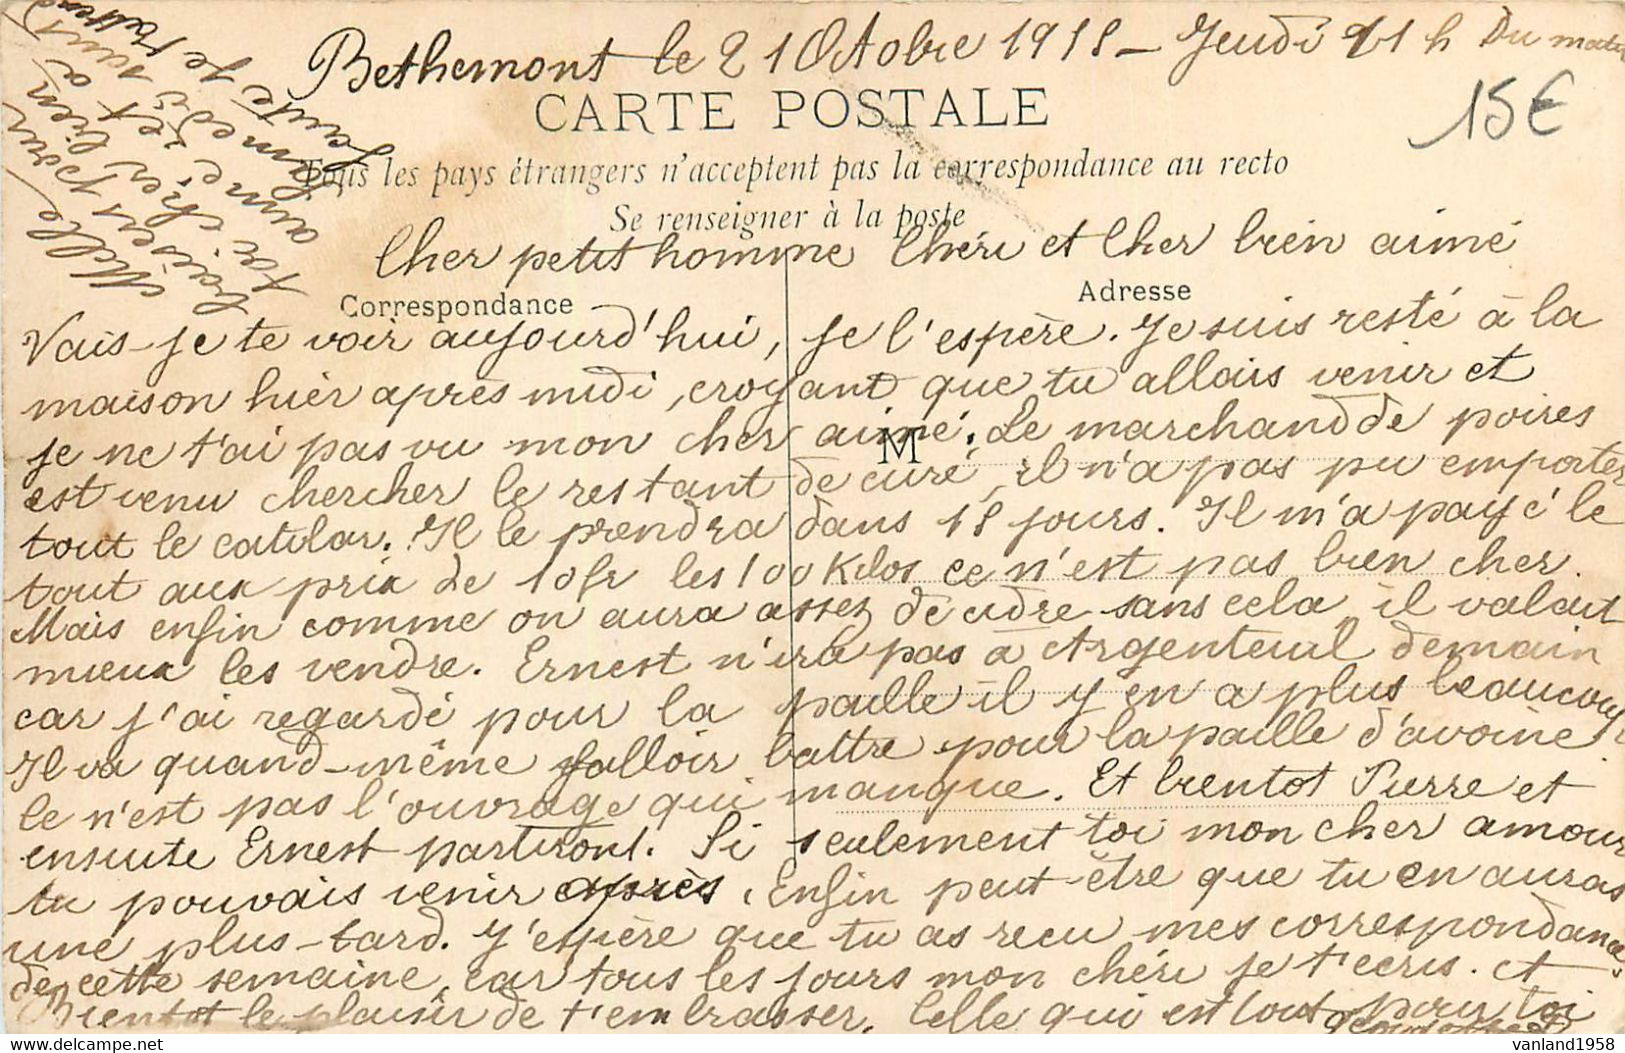 Bethemont le 21 Octobre 1915 - Jeudi 11 h Du matin
15€
CARTE POSTALE
Tous les pays étrangers n'acceptent pas la correspondance au recto
Se renseigner à la poste
Cher petit homme Chéri et Cher bien aimé
Correspondance
Adresse
Vais-je te voir aujourd'hui, je l'espère. Je suis resté à la
maison hier après midi, croyant que tu allais venir et
je ne t'ai pas vu mon cher aimé. Le marchand de poires
M
est venu chercher le restant de curé, il n'a pas pu emporter
tout le catilar. Il le prendra dans 15 jours. Il m'a payé le
tout aux prix de 10fr les 100 Kilos ce n'est pas bien cher.
Mais enfin comme on aura assez de cidre sans cela il valait
mieux les vendre. Ernest n'ira pas à Argenteuil demain
car j'ai regardé pour la paille il y en a plus beaucoup
Il va quand-même falloir battre pour la paille d'avoine
Ce n'est pas l'ouvrage qui manque. Et bientot Pierre et
ensuite Ernest partiront. Si seulement toi mon cher amour
tu pouvais venir après. Enfin peut-être que tu en auras
une plus-tard. J'espère que tu as recu mes correspondances
de cette semaine, car tous les jours mon chéri je t'ecris. et
Bientot le plaisir de t'embrasser. Celle qui est tout pour toi
Mille
baisers pour
toi cher bien
aimé et à
samedi sans
faute je t'attend
vanland1958